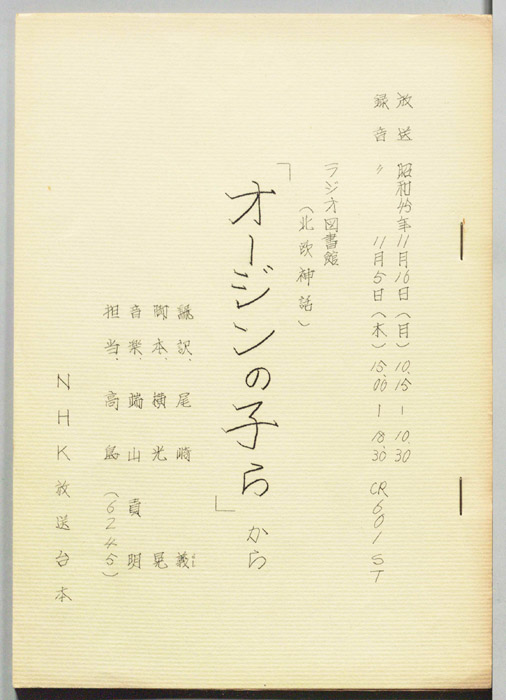 放送 昭和45年11月16日(月) 10.15-10.30
録音 〃 11月5日(木) 15.00-18.30 CR601ST
ラジオ図書館
(北欧神話)
「オージンの子ら」から
訳、尾崎 義
脚本、横光 晃
音楽、端山貢明
担当、高島(6245)
NHK放送台本